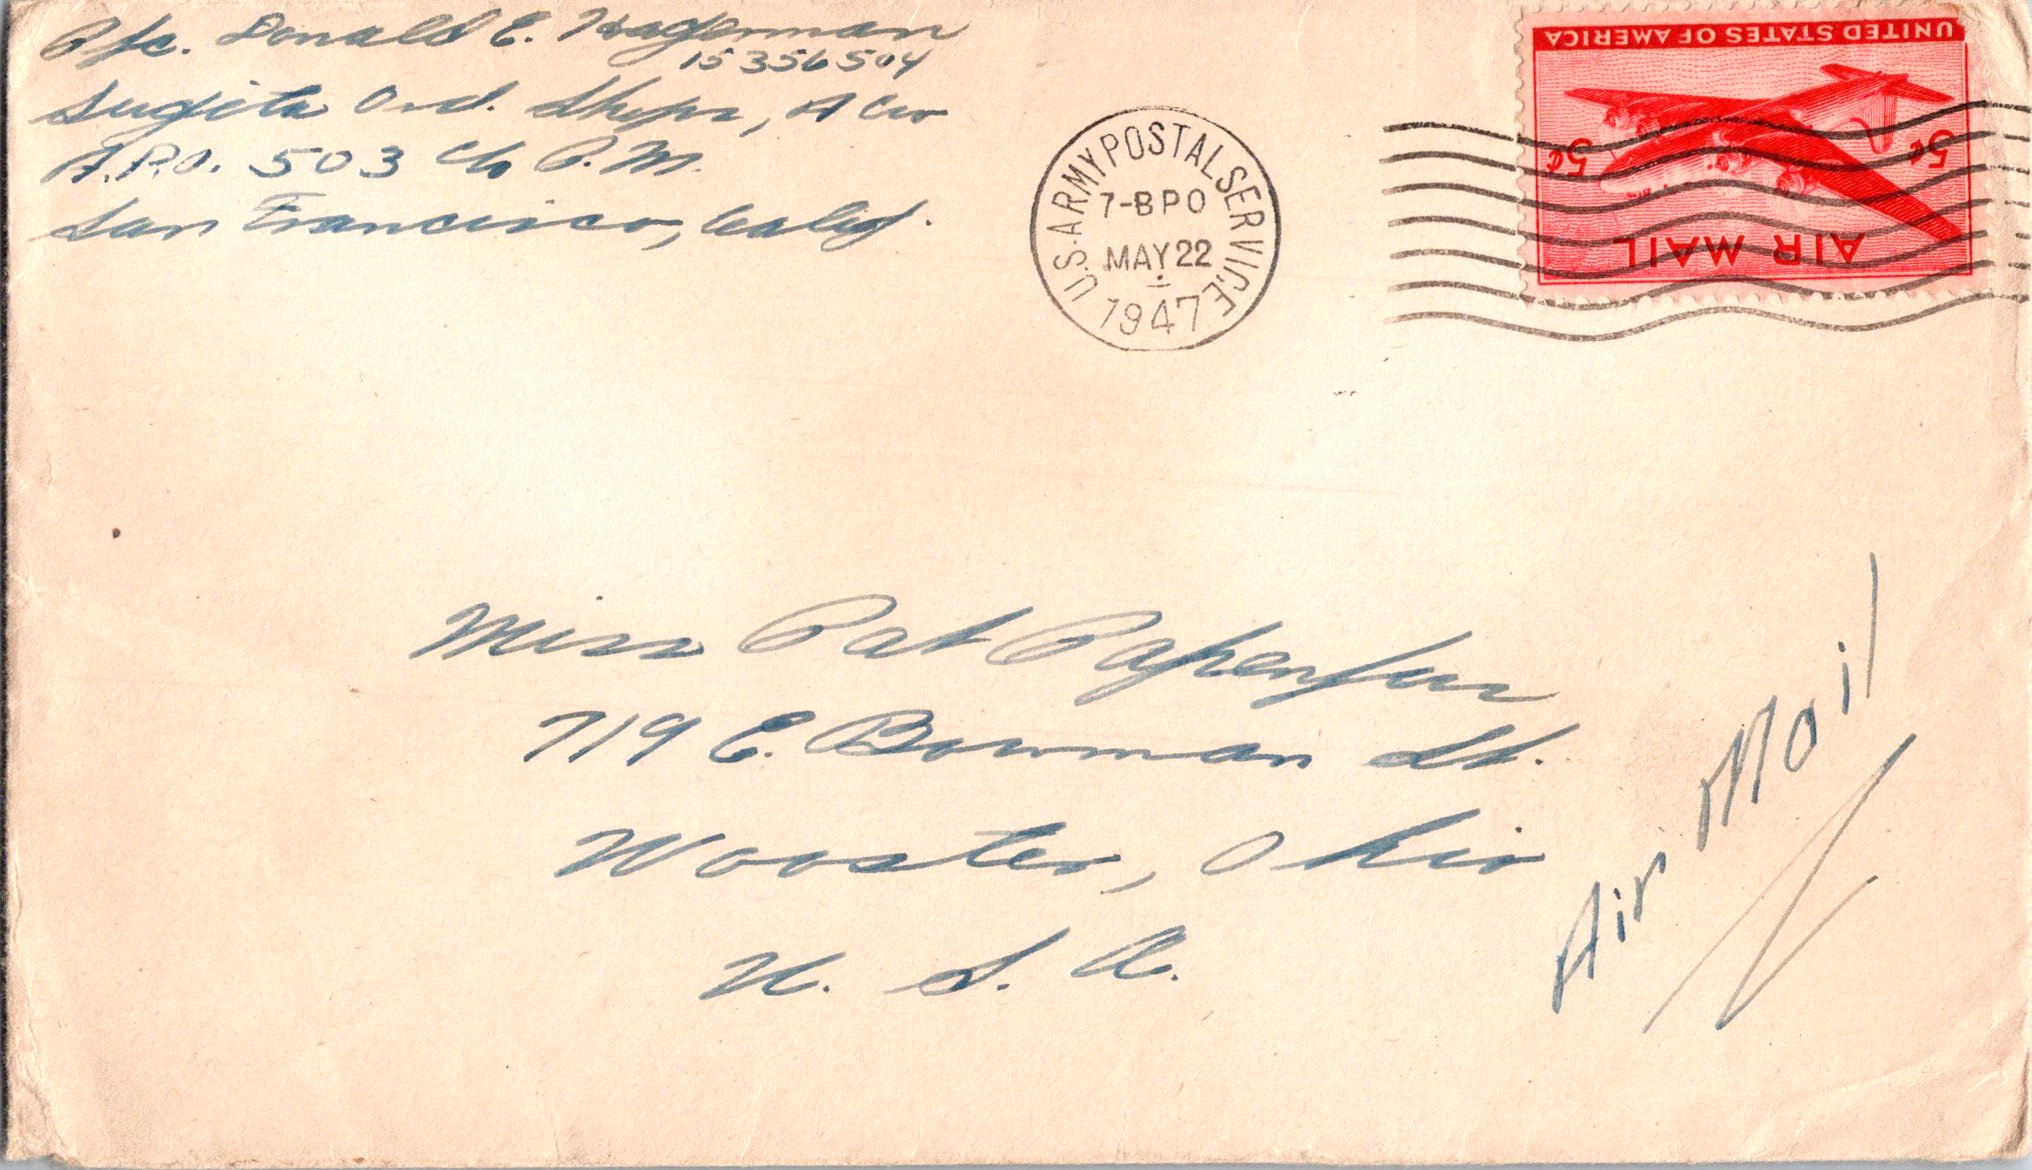 Pfc. Donald E. Hagerman
15356504
Sugita Ord. Shops, A Co
A.P.O. 503 c/o P.M.
San Francisco, Calif.
U.S. ARMY POSTAL SERVICE
7-BPO
MAY 22
1947
UNITED STATES OF AMERICA
5¢ 5¢
AIR MAIL
Miss Pat Papenfus
719 E. Bowman St.
Wooster, Ohio
U. S. A.
Air Mail